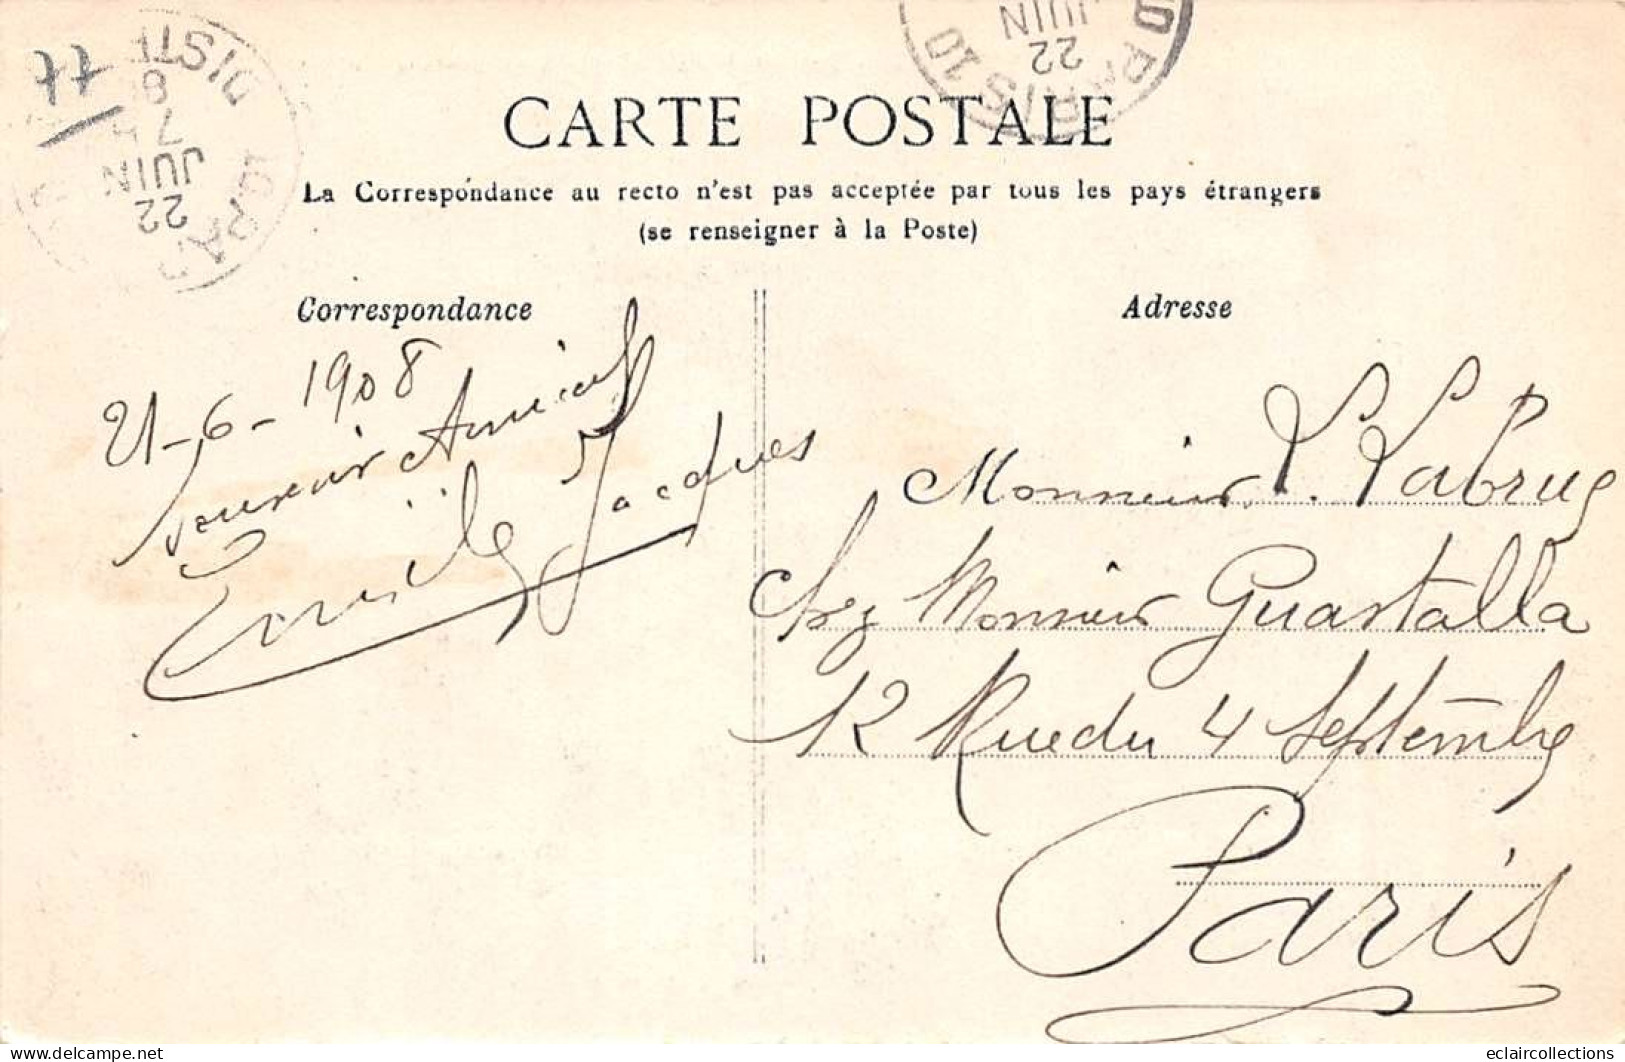 77
DISTR
6
7
JUIN
22
PARIS
22
JUIN
PARIS 10
CARTE POSTALE
La Correspondance au recto n'est pas acceptée par tous les pays étrangers
(se renseigner à la Poste)
Correspondance
21-6-1908
Souvenir Amical
Emile Jacques
Adresse
Monsieur L. Labrue
Chez Monsieur Guastalla
12 Rue du 4 Septembre
Paris
eclaircollections